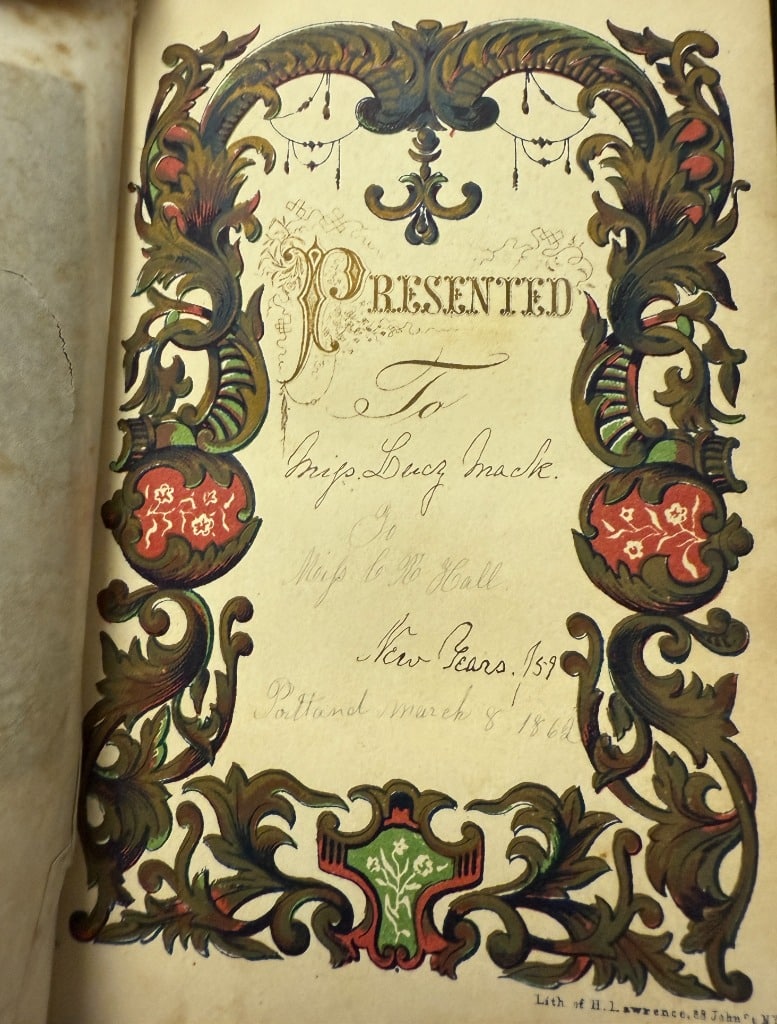 PRESENTED
To
Miss. Lucy Mack.
To
Miss C R Hall.
New Years. /59
Portland march 8 1862
Lith of H. Lawrence, 88 John St N.Y.